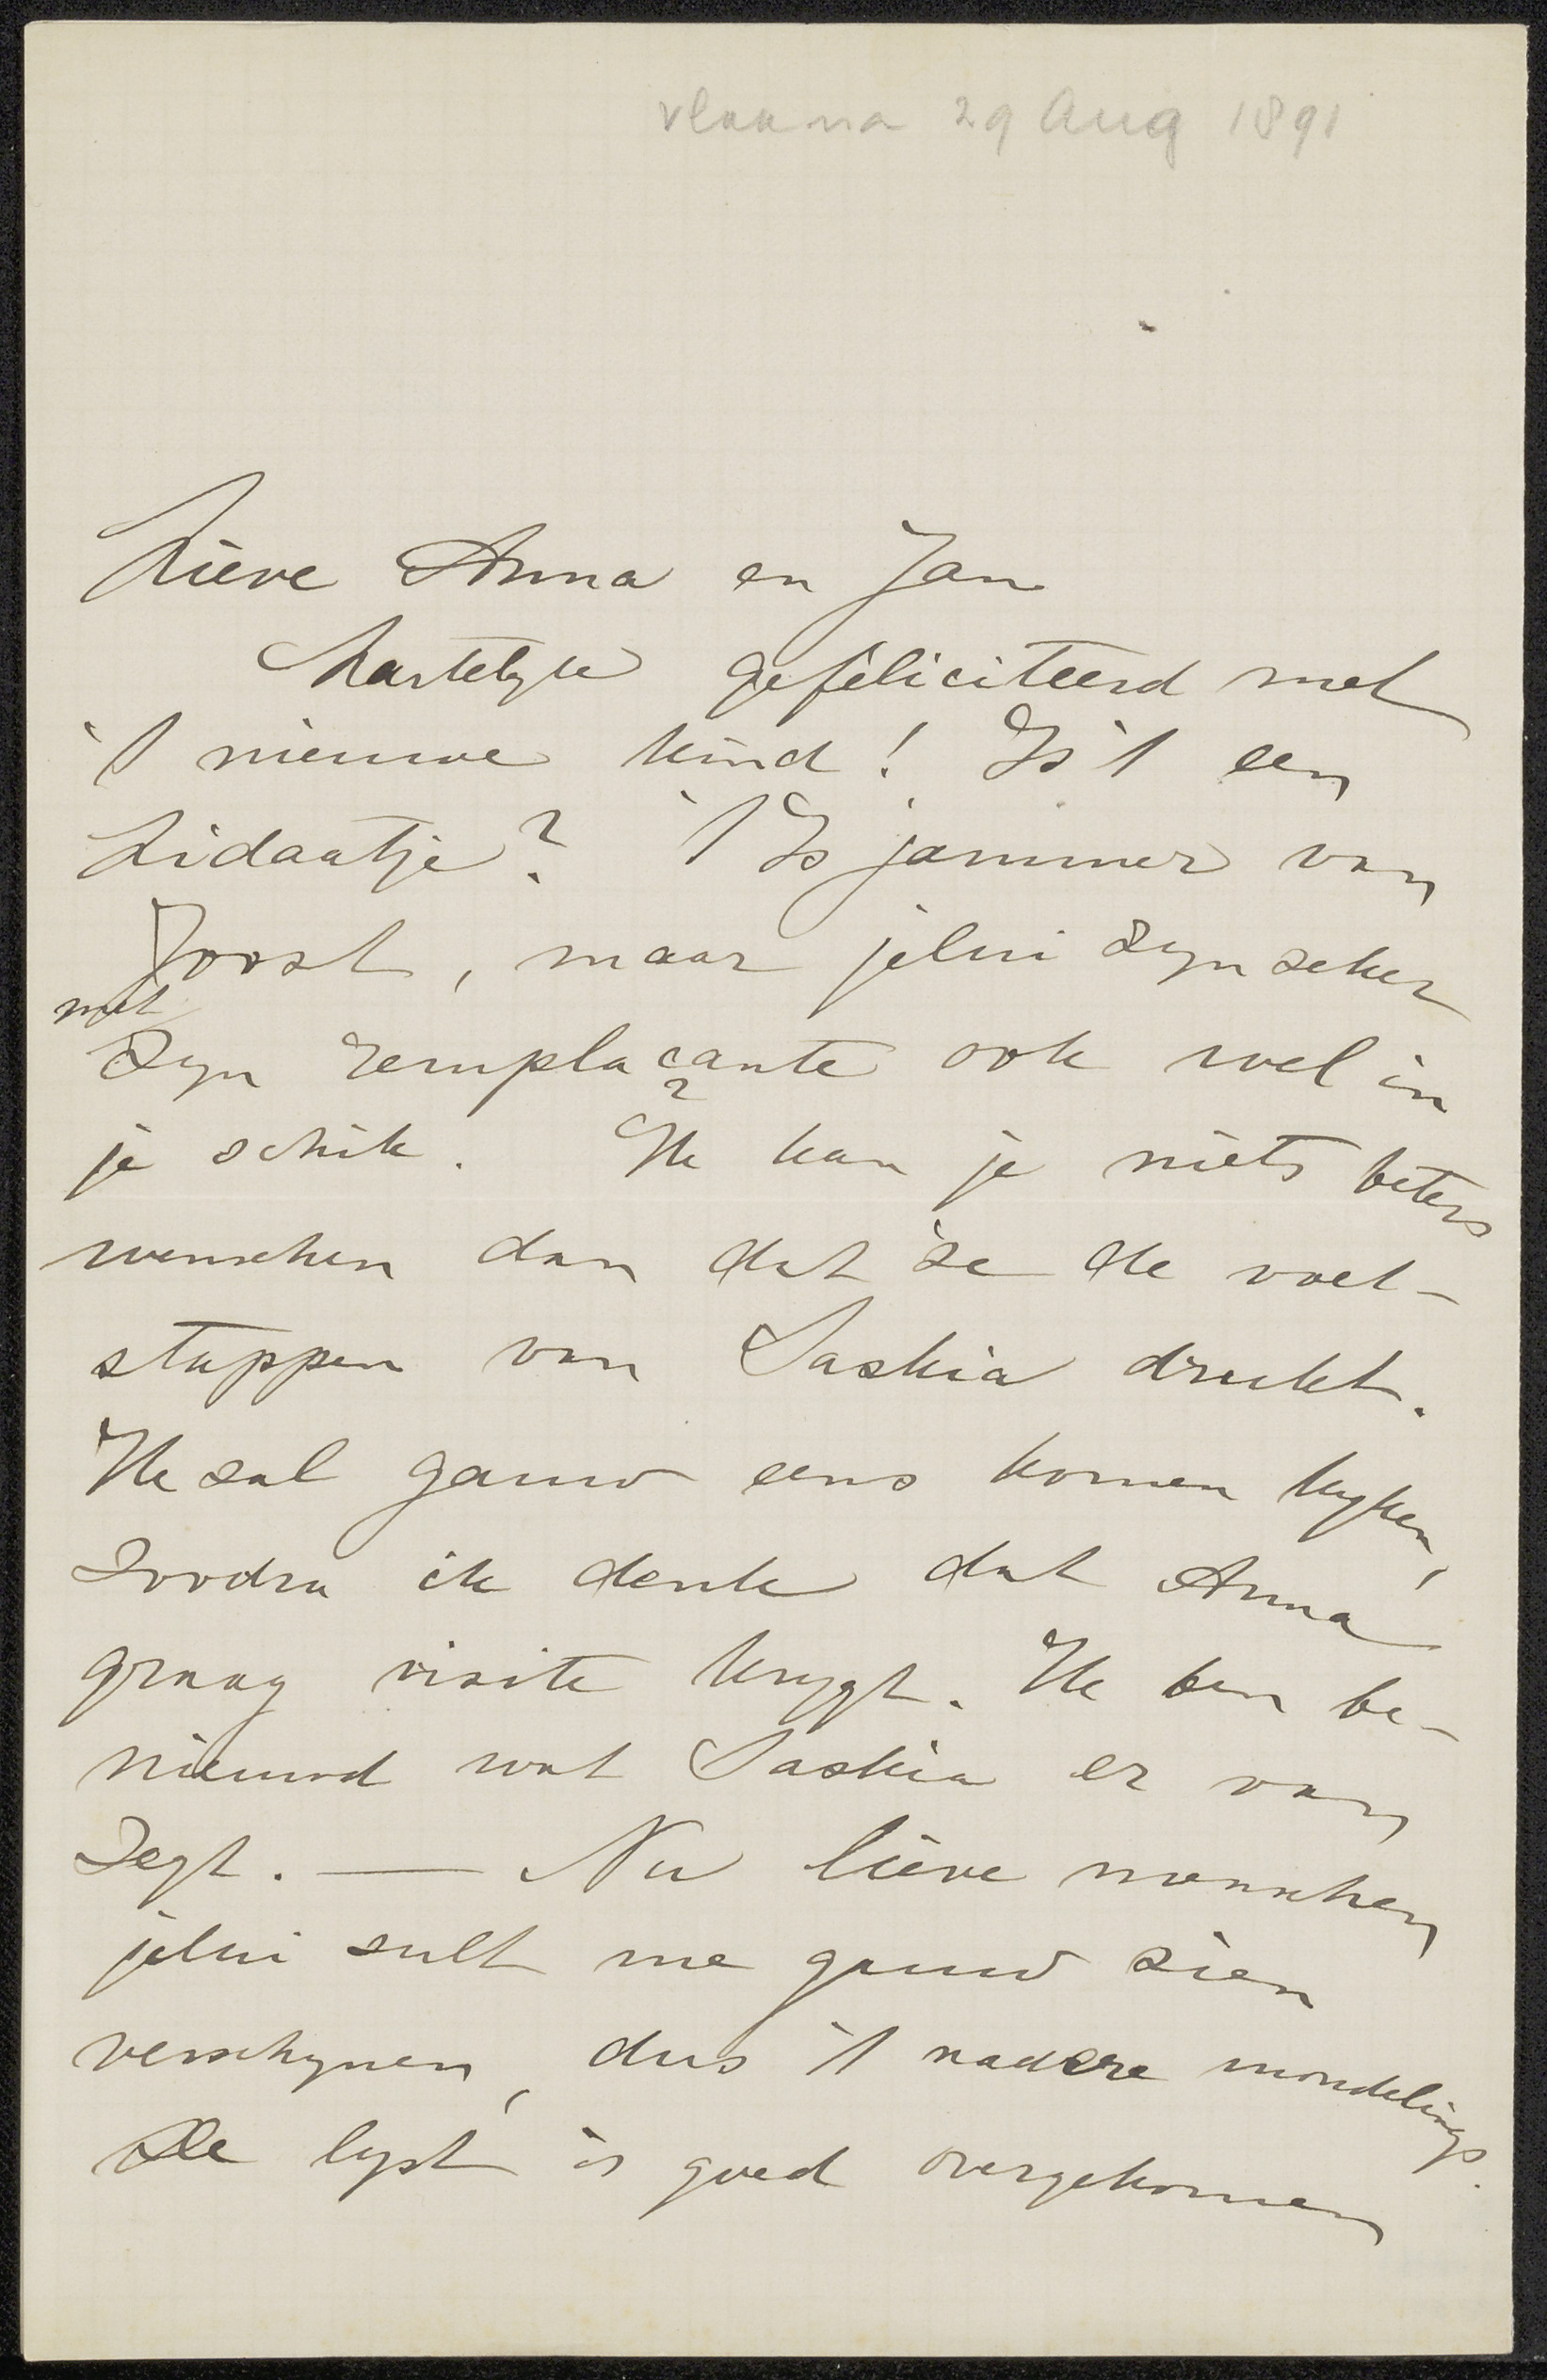 vlak na 29 Aug 1891
Lieve Anna en Jan
Hartelyk gefeliciteerd met
't nieuwe kind! Is 't een
Lidaatje? 't Is jammer van
Joost, maar jelui zyn zeker
met
zyn remplaçante ook wel in
je schik. Ik kan je niets beters
wenschen dan dat ze de voet-
stappen van Saskia drukt.
Ik zal gauw eens komen kyken,
zoodra ik denk dat Anna
graag visite krygt. Ik ben be-
nieuwd wat Saskia er van
zegt. — Nu lieve menschen
jelui zult me gauw zien
verschynen, dus 't nadere mondelings.
De lyst is goed overgekomen